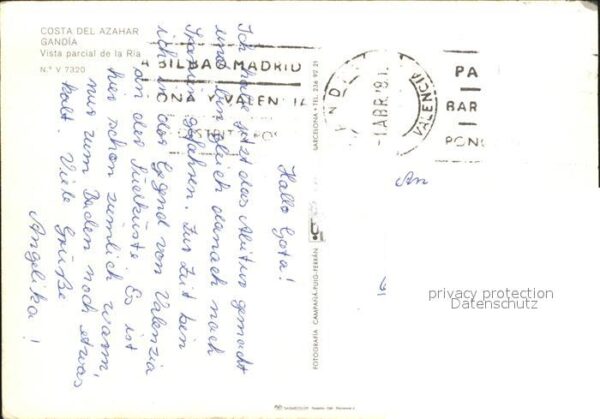 COSTA DEL AZAHAR
GANDÍA
Vista parcial de la Ria
N.º V 7320
BILBAO MADRID
ONA Y VALENCIA
1 ABR. 1981
VALENCIA
PA
BAR
PONG
Hallo Gota!
Ich habe jetzt das Abitur gemacht
und bin gleich danach nach
Spanien gefahren. Zur Zeit bin
ich in der Gegend von Valenzia
an der Südküste. Es ist
hier schon ziemlich warm,
nur zum Baden noch etwas
kalt. Viele Grüße
Angelika!
An
BARCELONA - TEL. 236 92 21
FOTOGRAFÍA CAMPAÑÁ-PUIG-FERRÁN
privacy protection
Datenschutz